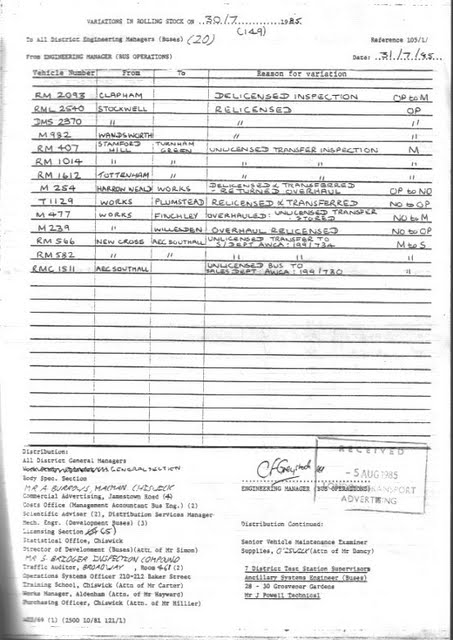 VARIATIONS IN ROLLING STOCK ON 30/7 1985
(149)
To All District Engineering Managers (Buses) (20) Reference 103/1/
From ENGINEERING MANAGER (BUS OPERATIONS) Date: 31/7/85.
Vehicle Number From To Reason for variation
RM 2093 CLAPHAM DELICENSED INSPECTION OP to M
RML 2540 STOCKWELL RELICENSED OP
DMS 2370 " " "
M 932 WANDSWORTH " "
RM 407 STAMFORD HILL TURNHAM GREEN UNLICENSED TRANSFER INSPECTION M
RM 1014 " " " " " "
RM 1612 TOTTENHAM " " " " "
M 254 HARROW WEALD WORKS DELICENSED & TRANSFERRED - RETURNED OVERHAUL OP to NO
T 1129 WORKS PLUMSTEAD RELICENSED & TRANSFERRED NO to OP
M 477 WORKS FINCHLEY OVERHAULED: UNLICENSED TRANSFER STORED NO to M
M 239 " WILLESDEN OVERHAUL RELICENSED NO to OP
RM 566 NEW CROSS AEC SOUTHALL UNLICENSED TRANSFER TO S/DEPT AWCA: 199/734 M to S
RM 582 " " " " "
RMC 1511 AEC SOUTHALL UNLICENSED BUS TO SALES DEPT AWCA: 199/730 "
Distribution:
All District General Managers
GENERAL SECTION
Body Spec. Section
MR A BURROWS, CHISWICK
Commercial Advertising, Jamestown Road (4)
Costs Office (Management Accountant Bus Eng.) (2)
Scientific Adviser (2), Distribution Services Manager
Mech. Engr. (Development Buses) (3)
Licensing Section
Statistical Office, Chiswick
Director of Development (Buses)(Attn. of Mr Simon)
MR S BRIDGER INSPECTION COMPOUND
Traffic Auditor, BROADWAY, Room (2)
Operations Systems Officer 210-212 Baker Street
Training School, Chiswick (Attn of Mr Carter)
Works Manager, Aldenham (Attn of Mr Hayward)
Purchasing Officer, Chiswick (Attn. of Mr Hillier)
(1) (2500 10/81 121/1)
ENGINEERING MANAGER (BUS OPERATIONS)
RECEIVED
- 5 AUG 1985
TRANSPORT
ADVERTISING
Distribution Continued:
Senior Vehicle Maintenance Examiner
Supplies, C'SWICK (Attn of Mr Suncy)
7 District Test Station Supervisors
Ancillary Systems Engineer (Buses)
28 - 30 Grosvenor Gardens
Mr J Powell Technical